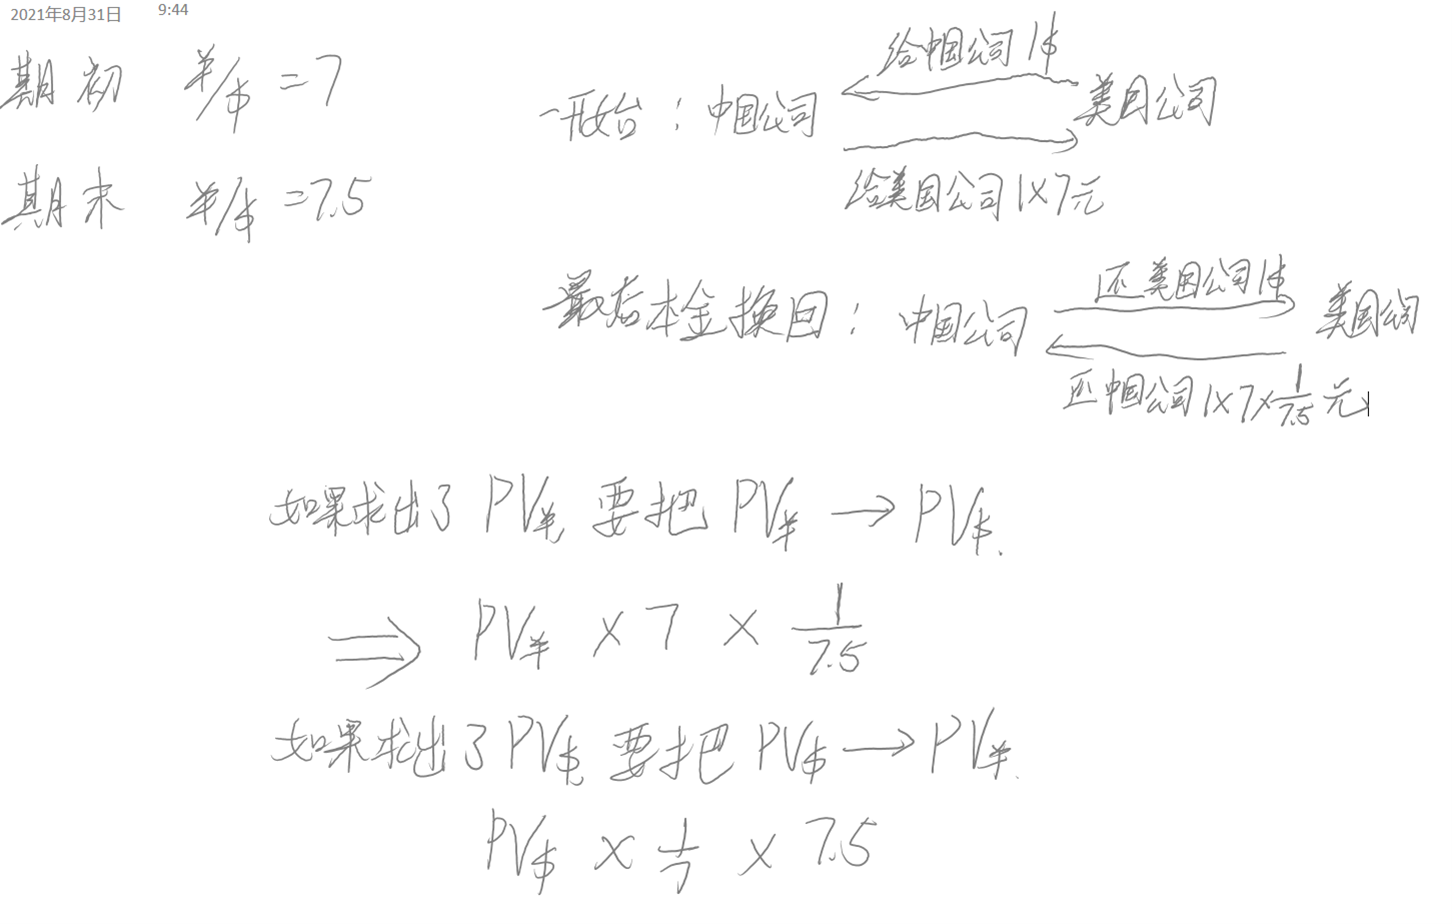 2021年8月31日 9:44
期初 ¥/$ =7
期末 ¥/$ =7.5
给中国公司 1$
一开始：中国公司 美国公司
给美国公司 1×7元
还美国公司1$
最后本金换回：中国公司 美国公司
还中国公司 1×7×1/7.5 元
如果求出了 PV¥, 要把 PV¥ → PV$.
⇒ PV¥ × 7 × 1/7.5
如果求出了 PV$, 要把 PV$ → PV¥.
PV$ × 1/7 × 7.5